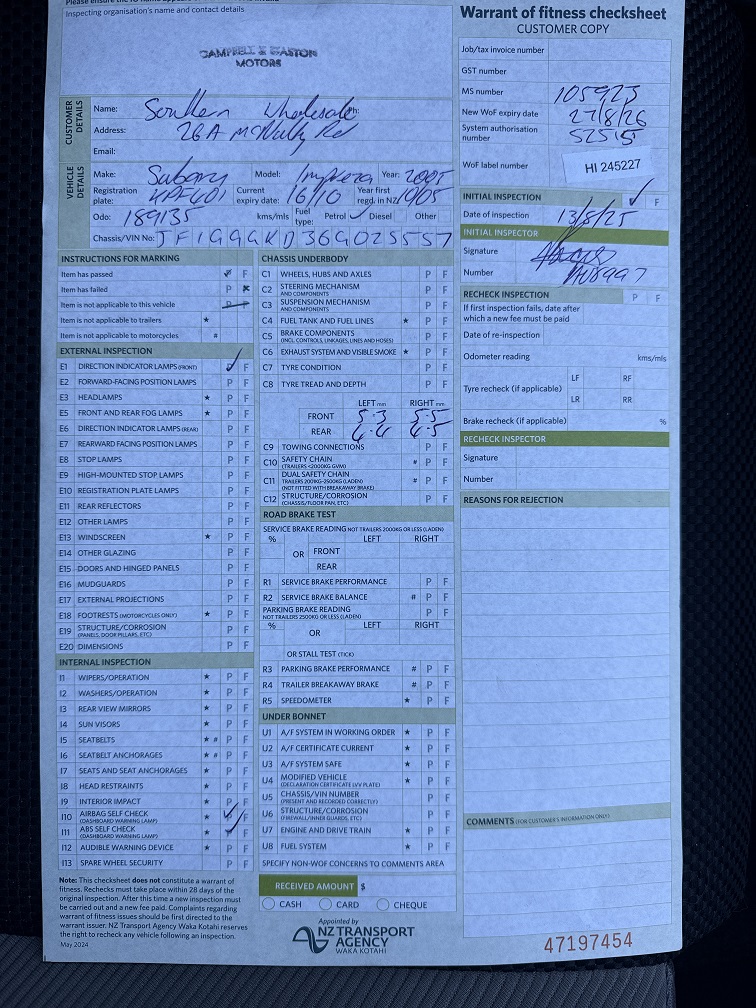 Inspecting organisation's name and contact details
CAMPBELL & GASTON
MOTORS
CUSTOMER DETAILS
Name: Southern Wholesale
Address: 26A McNulty Rd
Email:
VEHICLE DETAILS
Make: Subaru Model: Impreza Year: 2005
Registration plate: Current expiry date: 16/10 Year first regd. in NZ 10/05
Odo: 189135 kms/mls Fuel type: Petrol ✓ Diesel Other
Chassis/VIN No: JF1GGGKD36G025557
INSTRUCTIONS FOR MARKING
Item has passed P F
Item has failed P F
Item is not applicable to this vehicle P F
Item is not applicable to trailers ★
Item is not applicable to motorcycles #
EXTERNAL INSPECTION
E1 DIRECTION INDICATOR LAMPS (FRONT) P F
E2 FORWARD-FACING POSITION LAMPS P F
E3 HEADLAMPS ★ P F
E5 FRONT AND REAR FOG LAMPS ★ P F
E6 DIRECTION INDICATOR LAMPS (REAR) P F
E7 REARWARD FACING POSITION LAMPS P F
E8 STOP LAMPS P F
E9 HIGH-MOUNTED STOP LAMPS P F
E10 REGISTRATION PLATE LAMPS P F
E11 REAR REFLECTORS P F
E12 OTHER LAMPS P F
E13 WINDSCREEN ★ P F
E14 OTHER GLAZING P F
E15 DOORS AND HINGED PANELS P F
E16 MUDGUARDS P F
E17 EXTERNAL PROJECTIONS P F
E18 FOOTRESTS (MOTORCYCLES ONLY) ★ P F
E19 STRUCTURE/CORROSION P F
(PANELS, DOOR PILLARS, ETC)
E20 DIMENSIONS P F
INTERNAL INSPECTION
I1 WIPERS/OPERATION ★ P F
I2 WASHERS/OPERATION ★ P F
I3 REAR VIEW MIRRORS ★ P F
I4 SUN VISORS ★ P F
I5 SEATBELTS ★ # P F
I6 SEATBELT ANCHORAGES ★ # P F
I7 SEATS AND SEAT ANCHORAGES ★ P F
I8 HEAD RESTRAINTS ★ P F
I9 INTERIOR IMPACT ★ P F
I10 AIRBAG SELF CHECK
(DASHBOARD WARNING LAMP)
I11 ABS SELF CHECK
(DASHBOARD WARNING LAMP)
I12 AUDIBLE WARNING DEVICE ★ P F
I13 SPARE WHEEL SECURITY P F
Note: This checksheet does not constitute a warrant of
fitness. Rechecks must take place within 28 days of the
original inspection. After this time a new inspection must
be carried out and a new fee paid. Complaints regarding
warrant of fitness issues should be first directed to the
warrant issuer. NZ Transport Agency Waka Kotahi reserves
the right to recheck any vehicle following an inspection.
May 2024
CHASSIS UNDERBODY
C1 WHEELS, HUBS AND AXLES P F
C2 STEERING MECHANISM P F
AND COMPONENTS
C3 SUSPENSION MECHANISM P F
AND COMPONENTS
C4 FUEL TANK AND FUEL LINES ★ P F
C5 BRAKE COMPONENTS P F
(INCL. CONTROLS, LINKAGES, LINES AND HOSES)
C6 EXHAUST SYSTEM AND VISIBLE SMOKE ★ P F
C7 TYRE CONDITION P F
C8 TYRE TREAD AND DEPTH P F
LEFT mm RIGHT mm
FRONT 5.3 5.5
REAR 4.4 4.5
C9 TOWING CONNECTIONS P F
C10 SAFETY CHAIN # P F
(TRAILERS <2000KG GVM)
C11 DUAL SAFETY CHAIN # P F
TRAILERS 2000KG-2500KG (LADEN)
(NOT FITTED WITH BREAKAWAY BRAKE)
C12 STRUCTURE/CORROSION P F
(CHASSIS/FLOOR PAN, ETC)
ROAD BRAKE TEST
SERVICE BRAKE READING NOT TRAILERS 2000KG OR LESS (LADEN)
% LEFT RIGHT
OR FRONT
REAR
R1 SERVICE BRAKE PERFORMANCE P F
R2 SERVICE BRAKE BALANCE # P F
PARKING BRAKE READING P F
NOT TRAILERS 2500KG OR LESS (LADEN)
% LEFT RIGHT
OR
OR STALL TEST (TICK)
R3 PARKING BRAKE PERFORMANCE # P F
R4 TRAILER BREAKAWAY BRAKE # P F
R5 SPEEDOMETER ★ P F
UNDER BONNET
U1 A/F SYSTEM IN WORKING ORDER ★ P F
U2 A/F CERTIFICATE CURRENT ★ P F
U3 A/F SYSTEM SAFE ★ P F
U4 MODIFIED VEHICLE ★ P F
(DECLARATION CERTIFICATE LVV PLATE)
U5 CHASSIS/VIN NUMBER P F
(PRESENT AND RECORDED CORRECTLY)
U6 STRUCTURE/CORROSION P F
(FIREWALL/INNER GUARDS, ETC)
U7 ENGINE AND DRIVE TRAIN ★ P F
U8 FUEL SYSTEM ★ P F
SPECIFY NON-WOF CONCERNS TO COMMENTS AREA
RECEIVED AMOUNT $
CASH CARD CHEQUE
Appointed by
NZ TRANSPORT
AGENCY
WAKA KOTAHI
Warrant of fitness checksheet
CUSTOMER COPY
Job/tax invoice number
GST number
MS number 105923
New WoF expiry date 27/8/26
System authorisation number 52515
WoF label number HI 245227
INITIAL INSPECTION ✓ F
Date of inspection 13/8/25
INITIAL INSPECTOR
Signature
Number
RECHECK INSPECTION P F
If first inspection fails, date after
which a new fee must be paid
Date of re-inspection
Odometer reading kms/mls
Tyre recheck (if applicable) LF RF
LR RR
Brake recheck (if applicable) %
RECHECK INSPECTOR
Signature
Number
REASONS FOR REJECTION
COMMENTS (FOR CUSTOMER'S INFORMATION ONLY)
47197454